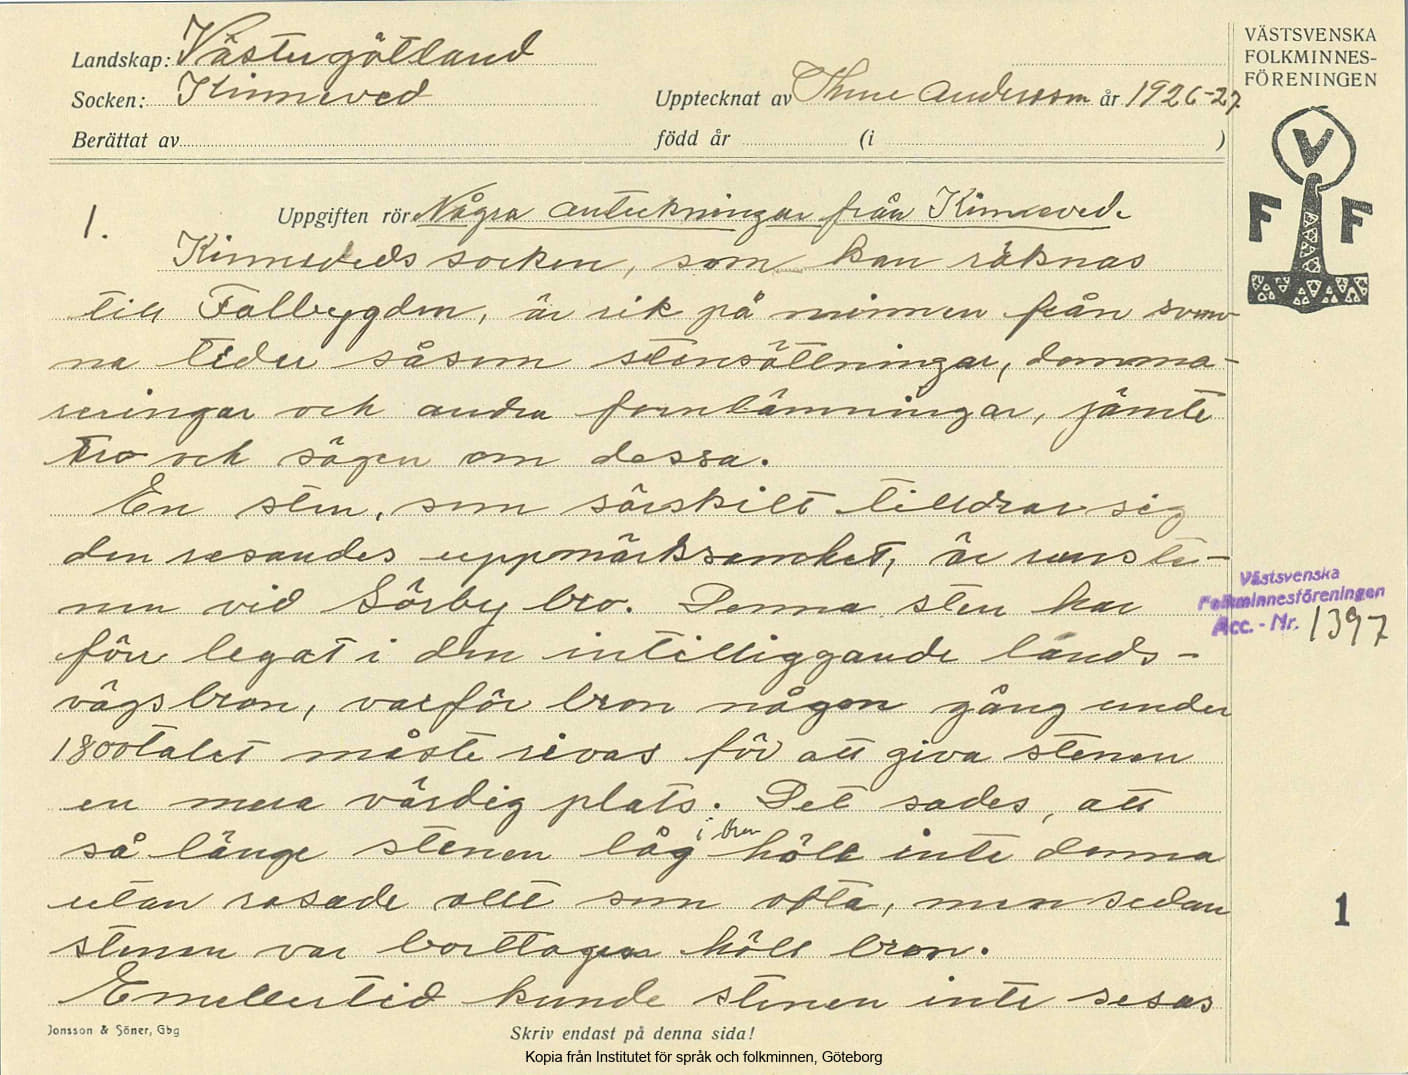 Landskap: Västergötland
Socken: Kinneved
Upptecknat av Thure Andersson år 1926-27
Berättat av
född år (i )
VÄSTSVENSKA
FOLKMINNES-
FÖRENINGEN
V
F F
1.
Uppgiften rör Några anteckningar från Kinneved.
Kinneveds socken, som kan räknas
till Falbygden, är rik på minnen från svun-
na tider såsom stensättningar, domma-
reringar och andra fornlämningar, jämte
tro och sägen om dessa.
En sten, som särskilt tilldrar sig
den resandes uppmärksamhet, är runste-
nen vid Sörby bro. Denna sten har
förr legat i den intilliggande lands-
vägsbron, varför bron någon gång under
1800talet måste rivas för att giva stenen
en mera värdig plats. Det sades, att
så länge stenen låg i bron höll inte denna
utan rasade allt som ofta, men sedan
stenen var borttagen höll bron.
Emellertid kunde stenen inte resas
Västsvenska
Folkminnesföreningen
Acc. - Nr. 1397
1
Jonsson & Söner, Gbg
Skriv endast på denna sida!
Kopia från Institutet för språk och folkminnen, Göteborg